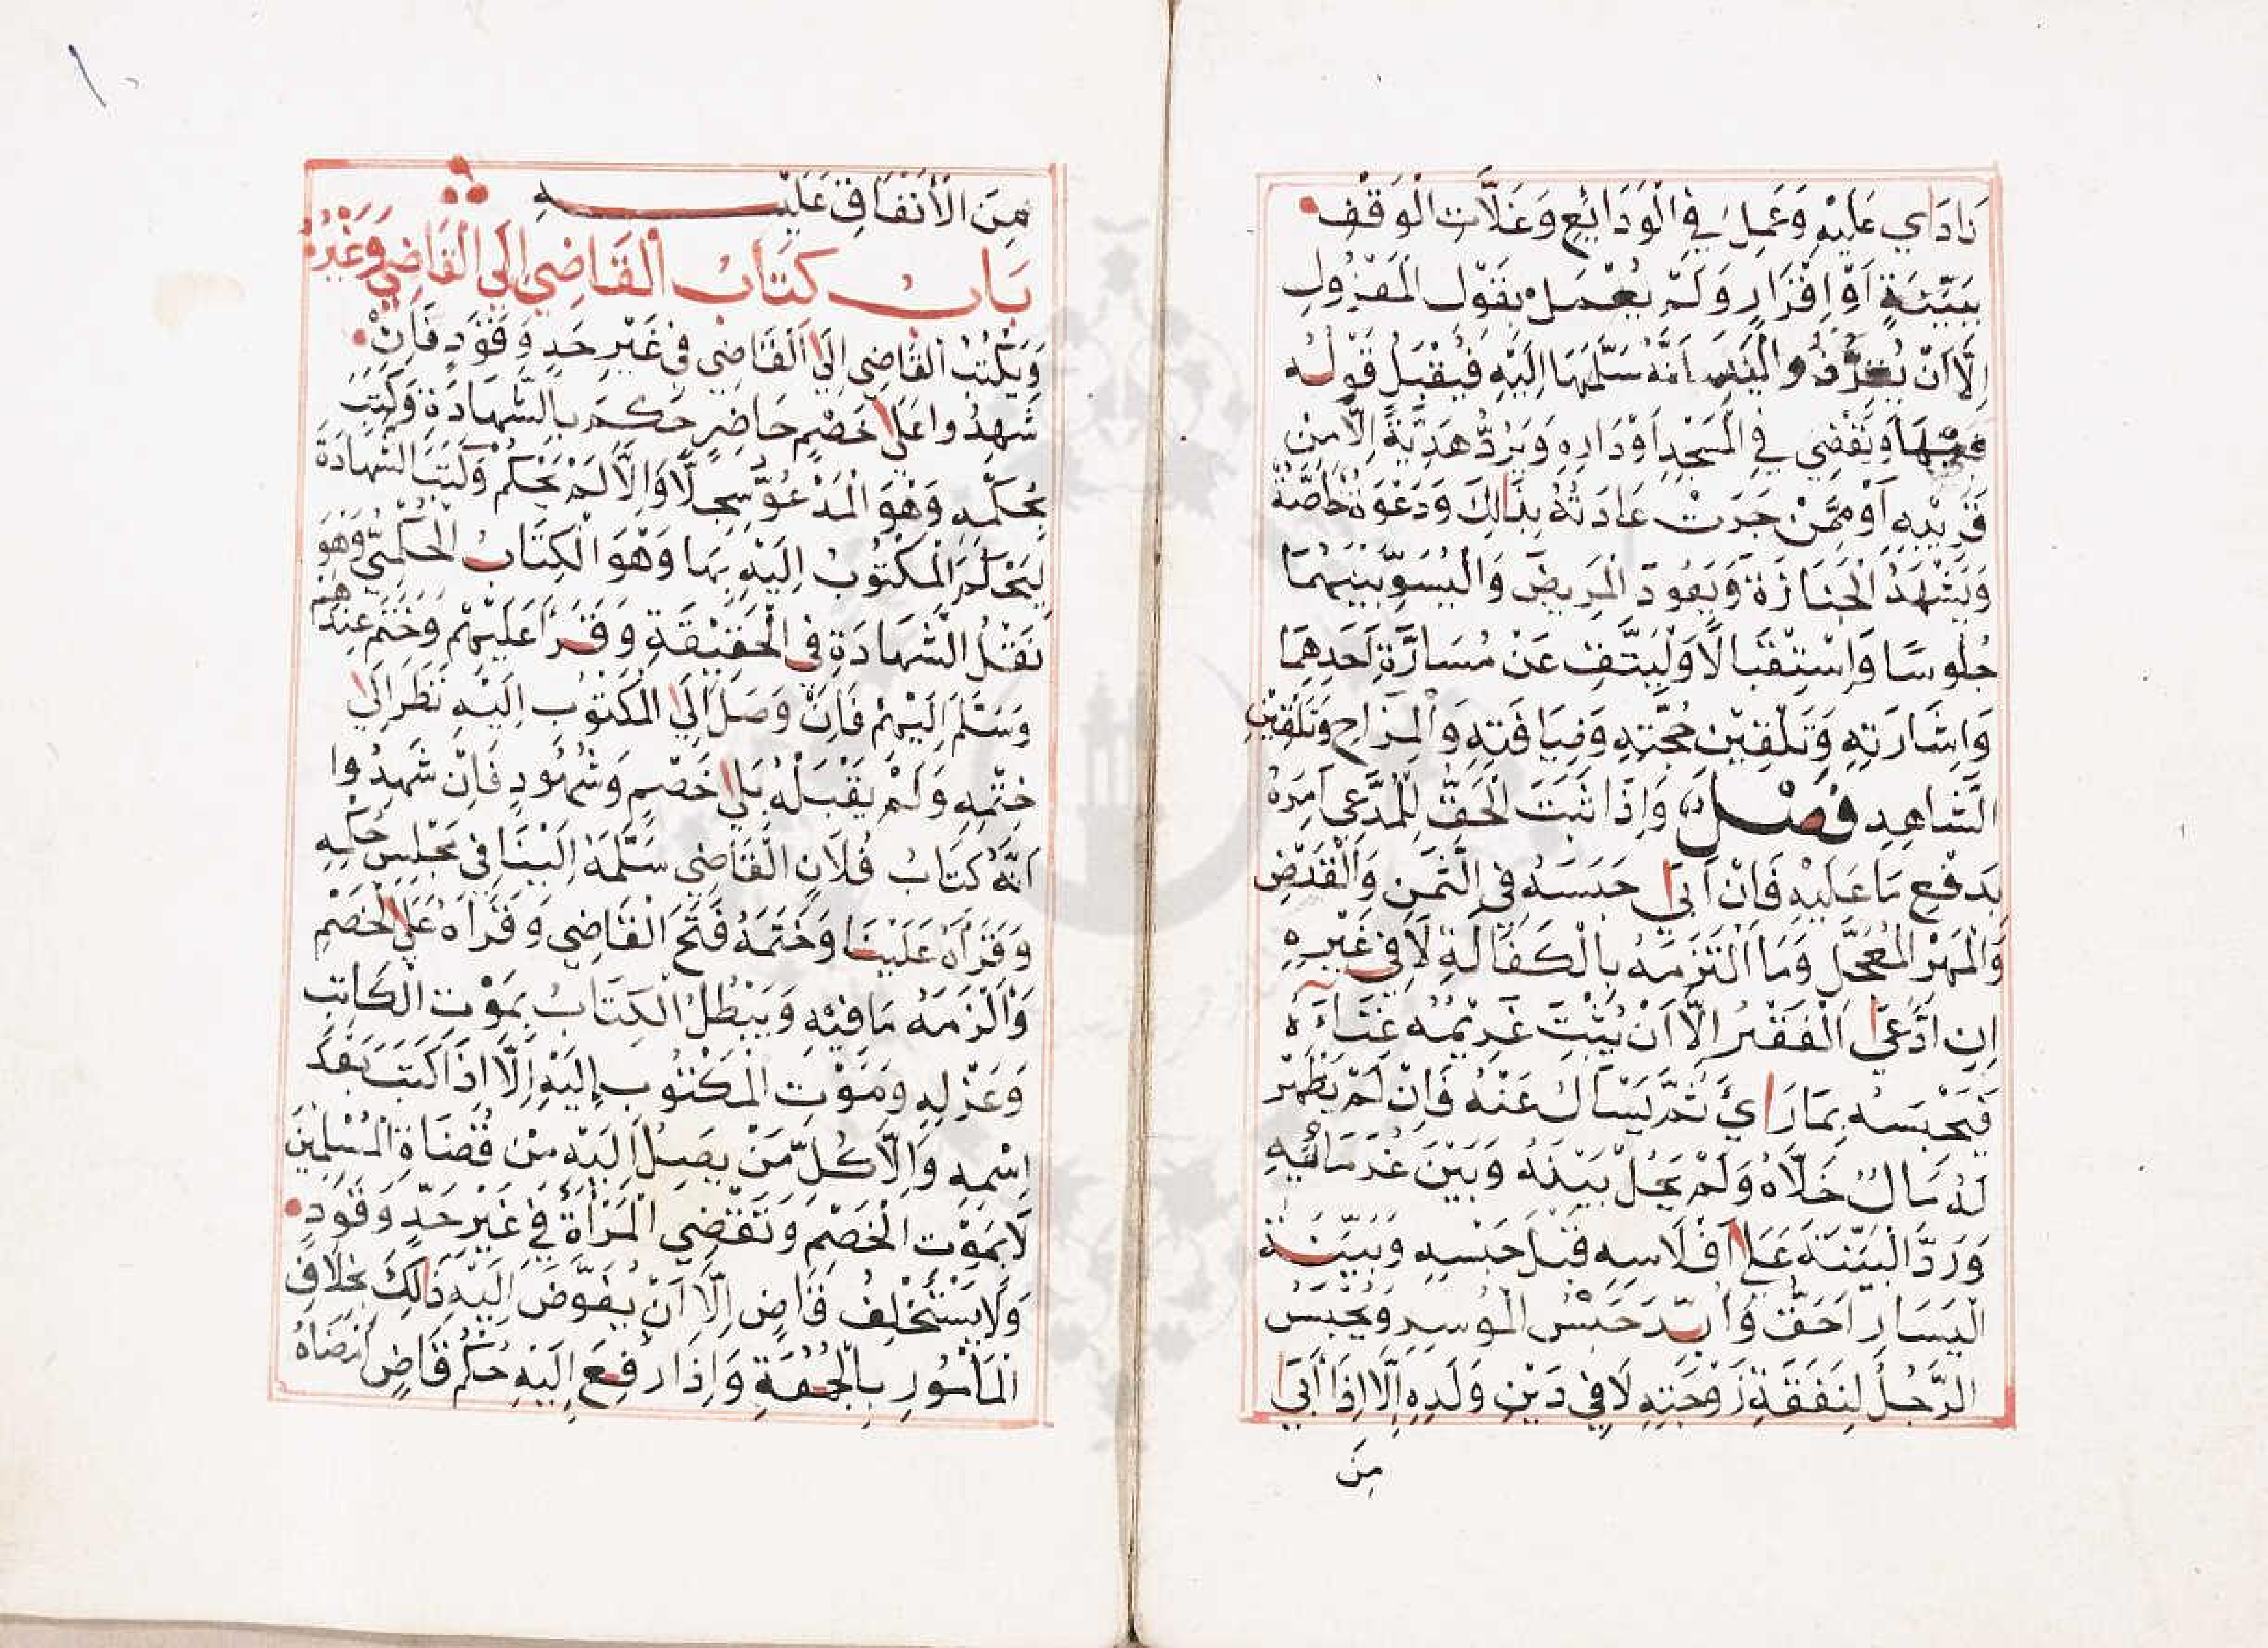 زَادَاي عَلَيْهِ وَعَمِلَ فِي الْوَدَائِعِ وَغَلَّاتِ الْوَقْفِ
بِبَيِّنَةٍ اَوْ اِقْرَارٍ وَلَمْ يُعْمَلْ بِقَوْلِ الْمَعْزُولِ
اِلَّا اَنْ يُقِرَّ ذُو الْيَدِ اَنَّهُ سَلَّمَهَا اِلَيْهِ فَيُقْبَلُ قَوْلُه
فِيْهَا وَيَقْضِي فِي الْمَسْجِدِ اَوْ دَارِهِ وَيَرُدُّ هَدِيَّةً اِلَّا مِنْ
قَرِيْبِهِ اَوْ مِمَّنْ جَرَتْ عَادَتُهُ بِذَالِكَ وَدَعْوَةً خَاصَّةً
وَيَشْهَدُ الْجَنَازَةَ وَيَعُودُ الْمَرِيضَ وَالْيُسَوِّ بَيْنَهُمَا
جُلُوسًا وَاِسْتِقْبَالًا وَلْيَتَّقِ عَنْ مُسَارَّةِ اَحَدِهِمَا
وَاِشَارَتِهِ وَتَلْقِيْنِ حُجَّتِهِ وَضِيَافَتِهِ وَالْمِزَاحِ وَتَلْقِيْنِ
الشَّاهِدِ فَصْلٌ وَاِذَا ثَبَتَ الْحَقُّ لِلْمُدَّعِي اَمَرَهُ
بِدَفْعِ مَا عَلَيْهِ فَاِنْ اَبَي حَبَسَهُ فِي الثَّمَنِ وَالْقَرْضِ
وَالْمَهْرِ الْمُعَجَّلِ وَمَا الْتَزَمَهُ بِالْكَفَالَةِ لَا فِي غَيْرِهِ
اِنِ ادَّعَي الْفَقْرَ اِلَّا اَنْ يُثْبِتَ غَرِيْمُهُ غَنَاءَهُ
فَيَحْبِسُهُ بِمَا رَاَيَ ثُمَّ يَسْاَلُ عَنْهُ فَاِنْ لَمْ يَظْهَرْ
لَهُ مَالٌ خَلَّاهُ وَلَمْ يَحُلْ بَيْنَهُ وَبَيْنَ غُرَمَائِهِ
وَرَدَّ الْبَيِّنَةَ عَلَي اِفْلَاسِهِ قَبْلَ حَبْسِهِ وَبَيِّنَةُ
الْيَسَارِ اَحَقُّ وَاَبَّدَ حَبْسُ الْمُوسِرِ وَيُحْبَسُ
الرَّجُلُ لِنَفَقَةِ زَوْجَتِهِ لَا فِي دَيْنِ وَلَدِهِ اِلَّا اِذَا اَبَي
مِنَ
مِنَ الْاَنْفَاقِ عَلَيْهِ
بَابُ كِتَابُ الْقَاضِي اِلَي الْقَاضِي وَغَيْرُهُ
وَيَكْتُبُ الْقَاضِي اِلَي الْقَاضِي فِي غَيْرِ حَدٍ وَقَوَدٍ فَاِنْ
شَهِدُوا عَلَي خَصْمٍ حَاضِرٍ حَكَمَ بِالشَّهَادَةِ وَكَتَبَ
بِحُكْمِهِ وَهُوَ الْمَدْعُوُّ سِجِلًّا وَاِلَّا لَمْ يَحْكُمْ وَكَتَبَ الشَّهَادَةَ
لِيَحْكُمَ الْمَكْتُوْبُ اِلَيْهِ بِهَا وَهُوَ الْكِتَابُ الْحُكْمِيُّ وَهُوَ
نَقْلُ الشَّهَادَةِ فِي الْحَقِيْقَةِ وَقَرَأَ عَلَيْهِمْ وَخَتَمَ عِنْدَهُمْ
وَسَلَّمَ اِلَيْهِمْ فَاِنْ وَصَلَ اِلَي الْمَكْتُوْبِ اِلَيْهِ نَظَرَ اِلَي
خَتْمِهِ وَلَمْ يَقْبَلْهُ بَلَا خَصْمٍ وَشُهُودٍ فَاِنْ شَهِدُوا
اَنَّهُ كِتَابُ فُلَانِ الْقَاضِي سَلَّمَهُ اِلَيْنَا فِي مَجْلِسِ حُكْمِهِ
وَقَرَأَهُ عَلَيْنَا وَخَتَمَهُ فَتَحَ الْقَاضِي وَقَرَاَهُ عَلَي الْخَصْمِ
وَاَلْزَمَهُ مَا فِيْهِ وَيَبْطُلُ الْكِتَابُ بِمَوْتِ الْكَاتِبِ
وَعَزْلِهِ وَمَوْتِ الْمَكْتُوْبِ اِلَيْهِ اِلَّا اِذَا كَتَبَ بَعْدَ
اِسْمِهِ وَاِلَّا كُلِّ مَنْ يَصِلُ اِلَيْهِ مِنْ قُضَاةِ الْمُسْلِمِيْنَ
لَا بِمَوْتِ الْخَصْمِ وَتَقْضِي الْمَرْأَةُ فِي غَيْرِ حَدٍّ وَقَوَدٍ
وَلَا يَسْتَخْلِفُ قَاضٍ اِلَّا اَنْ يُفَوَّضَ اِلَيْهِ ذَالِكَ بِخِلَافِ
الْمَأْمُوْرِ بِالْجُمُعَةِ وَاِذَا رُفِعَ اِلَيْهِ حُكْمُ قَاضٍ اَمْضَاهُ